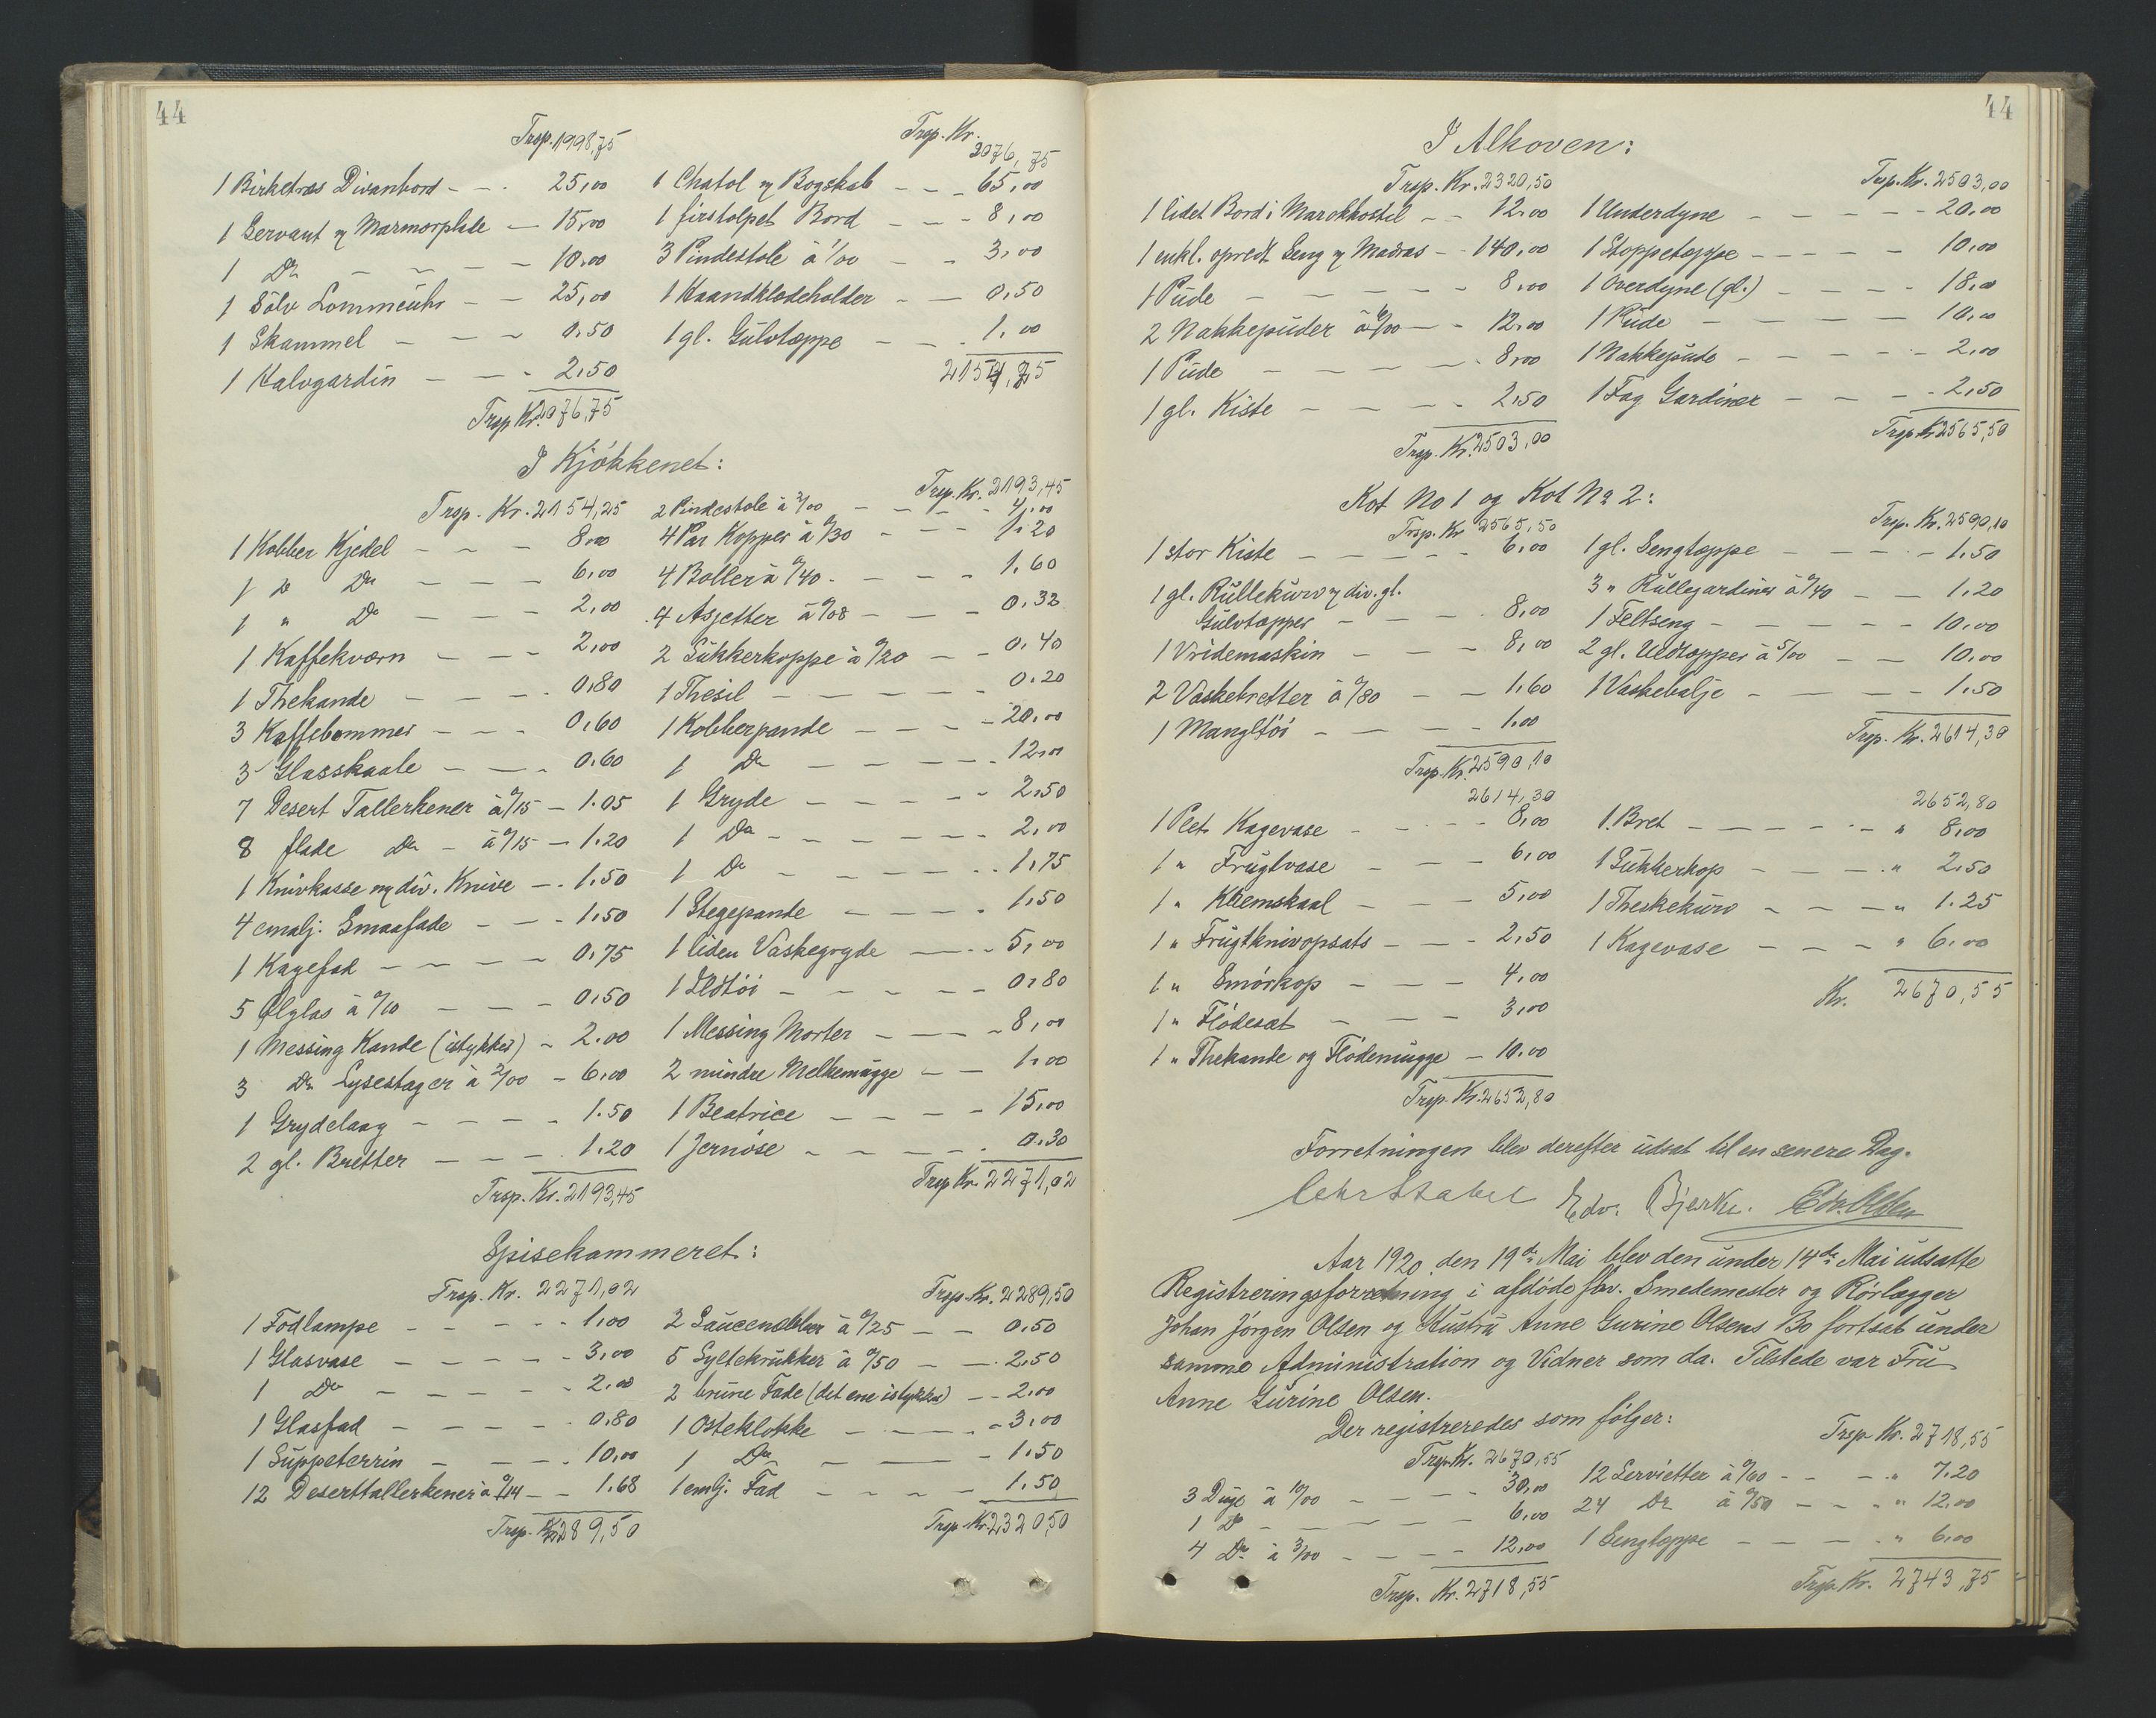 44
Trsp. 1998,75
1 Birketræs Divanbord - - 25,00
1 Servant m Marmorplade - 15,00
1 Do - - - 10,00
1 Sølv Lommeuhr - - 25,00
1 Skammel - - - 0,50
1 Halvgardin - - - 2,50
Trsp Kr. 2076,75
Trsp. Kr. 2076,75
1 Chatol m Bogskab - - - 65,00
1 firstolpet Bord - - - 8,00
3 Pindestole à 1/00 - - 3,00
1 Haandklædeholder - - 0,50
1 gl. Gulvtæppe - - - 1,00
2154,25
I Kjøkkenet:
Trsp. Kr. 2154,25
1 Kobber Kjedel - - - 8,00
1 do Do - - - 6,00
1 " Do - - - 2,00
1 Kaffekværn - - - 2,00
1 Thekande - - - 0,80
3 Kaffebommer - - - 0,60
3 Glasskaale - - - 0,60
7 Desert Tallerkener à 0/15 - 1.05
8 flade Do - à 0/15 - 1.20
1 Knivkasse m div. Knive - 1,50
4 emalj. Smaafade - - - 1,50
1 Kagefad - - - - 0,75
5 Ølglas à 0/10 - - - 0,50
1 Messing Kande (istykker) - 2.00
3 Do Lysestager à 2/00 - 6,00
1 Grydelaag - - - - 1.50
2 gl. Bretter - - - 1.20
Trsp. Kr. 2193,45
Trsp. Kr. 2193,45
2 Pindestole à 2/00 - - - 4,00
4 Par Kopper à 0/30 - - - 1.20
4 Boller à 0/40 - - - 1.60
4 Asjetter à 0/08 - - - 0.32
2 Sukkerkoppe à 0/20 - - 0.40
1 Thesil - - - - 0.20
1 Kobberpande - - - 20,00
1 Do - - - - 12,00
1 Gryde - - - - 2,50
1 Do - - - - 2,00
1 Do - - - - 1,75
1 Stegepande - - - - 1,50
1 liden Vaskegryde - - - 5,00
1 Ildtøi - - - - 0,80
1 Messing Morter - - - 8,00
2 mindre Melkemugge - - 1,00
1 Beatrice - - - - 15,00
1 Jernøse - - - - 0.30
Trsp Kr. 2271,02
Spisekammeret:
Trsp. Kr. 2271,02
1 Fodlampe - - - - 1,00
1 Glasvase - - - - 3,00
1 Do - - - - 2,00
1 Glasfad - - - - 0,80
1 Suppeterrin - - - 10,00
12 Deserttallerkener à 0/14 - - 1.68
Trsp. Kr. 2289,50
Trsp. Kr. 2289,50
2 Saucenebber à 0/25 - - 0.50
5 Syltekrukker à 0/50 - - 2.50
2 brune Fade (det ene istykker) - - 2.00
1 Osteklokke - - - - 3,00
1 Do - - - 1.50
1 emlj. Fad - - - - 1.50
Trsp. Kr. 2320,50
44
I Alkoven:
Trsp. Kr. 2320,50
1 lidet Bord i Marokkostil - - 12.00
1 enkl. opredt Seng m Madras - - 140,00
1 Pude - - - - 8,00
2 Nakkepuder à 6/00 - - 12.00
1 Pude - - - - 8,00
1 gl. Kiste - - - - 2,50
Trsp. Kr. 2503,00
Trsp. Kr. 2503,00
1 Underdyne - - - - - 20.00
1 Stoppetæppe - - - - 10,00
1 Overdyne (gl.) - - - - 18,00
1 Pude - - - - 10,00
1 Nakkepude - - - - 2,00
1 Fag Gardiner - - - - 2,50
Trsp Kr 2565,50
Kot No 1 og Kot No 2:
Trsp. Kr. 2565,50
1 stor Kiste - - - - 6,00
1 gl. Rullekurv m div. gl.
Gulvtæpper - - - - 8,00
1 Vridemaskin - - - 8,00
2 Vaskebretter à 0/80 - - 1,60
1 Mangltøi - - - - 1.00
Trsp. Kr. 2590,10
Trsp. Kr. 2590,10
1 gl. Sengtæppe - - - - 1.50
3 " Rullegardiner à 0/40 - - 1.20
1 Feltseng - - - - - 10,00
2 gl. Uldtæpper à 5/00 - - 10,00
1 Vaskebalje - - - - 1.50
Trsp. Kr. 2614,30
2614,30
1 Plet Kagevase - - - 8,00
1 " Frugtvase - - - 6,00
1 " Klemskaal - - - 5,00
1 " Frugtknivopsats - - - 2,50
1 " Smørkop - - - 4,00
1 " Flødesæt - - - 3,00
1 " Thekande og Flødemugge - 10,00
Trsp. Kr. 2652,80
2652,80
1 Bret - - - - " 8,00
1 Sukkerkop - - - " 2,50
1 Theskekurv - - - " 1.25
1 Kagevase - - - " 6,00
Kr. 2670,55
Forretningen blev derefter udsat til en senere Dag.
Edv. Bjerke. Edv. Olsen
Aar 1920 den 19de Mai blev den under 14de Mai udsatte
Registreringsforretning i afdøde fhv. Smedemester og Rørlægger
Johan Jørgen Olsen og Hustru Anne Gurine Olsens Bo fortsat under
samme Administration og Vidner som da. Tilstede var Fru
Anne Gurine Olsen.
Der registreredes som følger:
Trsp. Kr. 2670,55
3 Duge à 10/00 - - - - 30,00
1 Do - - - - 6,00
4 Do à 3/00 - - - - 12,00
Trsp. Kr. 2718,55
Trsp. Kr. 2718,55
12 Servietter à 0/60 - - - " 7.20
24 Do à 0/50 - - " " 12,00
1 Sengtæppe - - - " 6,00
Trsp. Kr. 2743,75